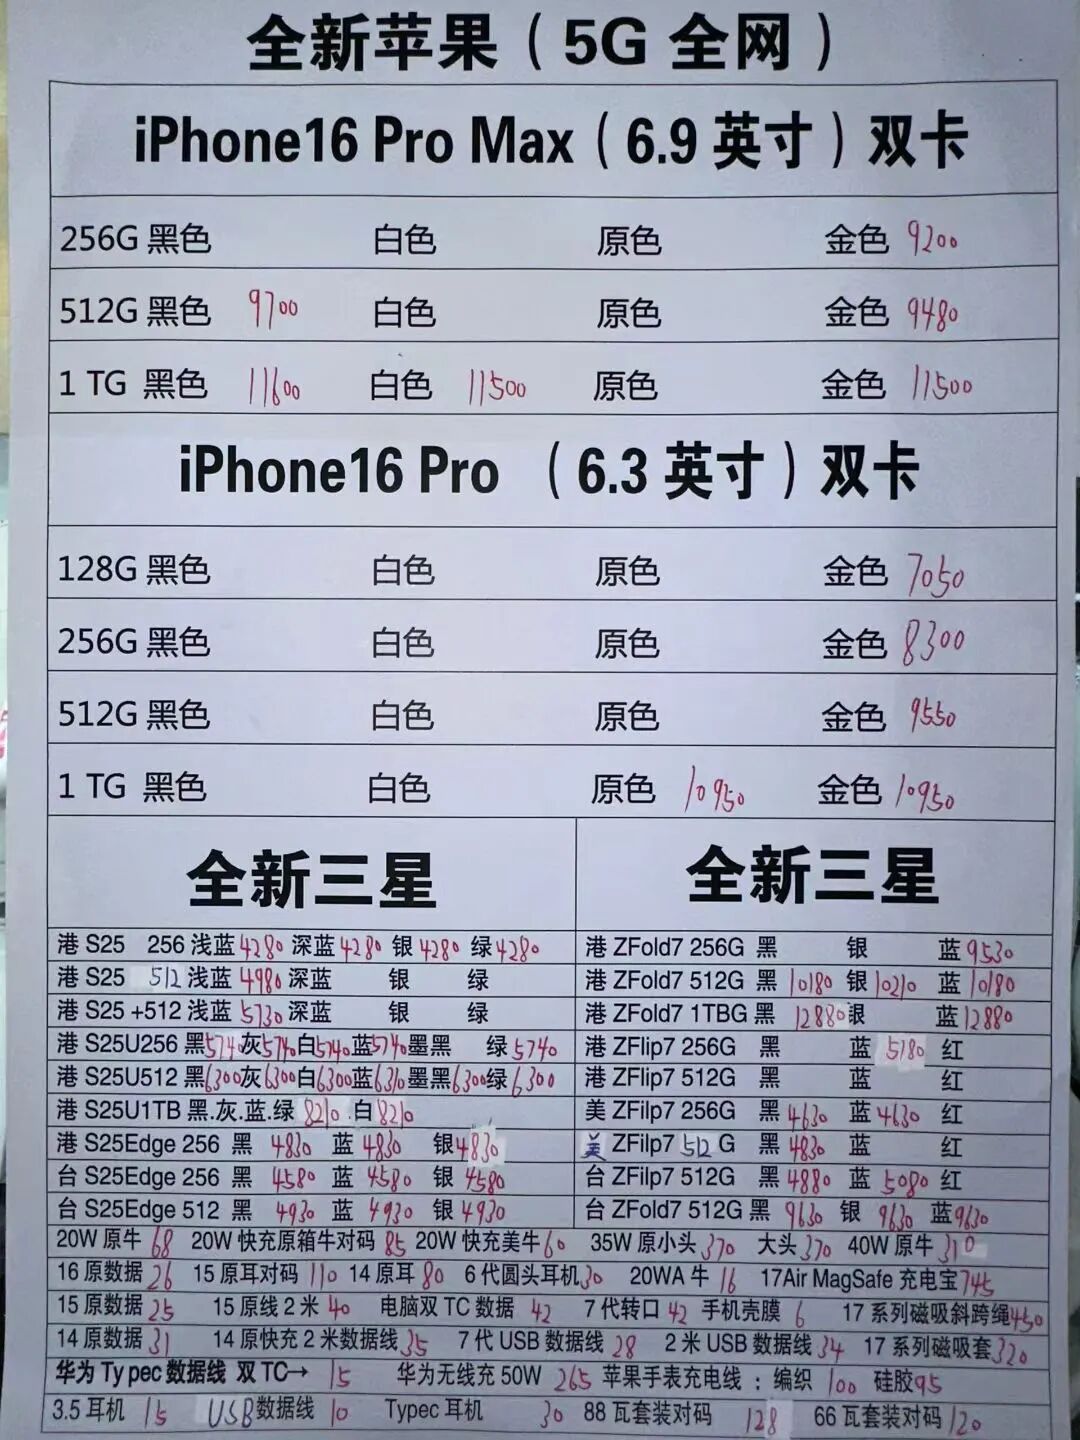 全新苹果（5G 全网）
iPhone16 Pro Max（6.9 英寸）双卡
256G 黑色 白色 原色 金色 9200
512G 黑色 9700 白色 原色 金色 9480
1 TG 黑色 11600 白色 11500 原色 金色 11500
iPhone16 Pro （6.3 英寸）双卡
128G 黑色 白色 原色 金色 7050
256G 黑色 白色 原色 金色 8300
512G 黑色 白色 原色 金色 9550
1 TG 黑色 白色 原色 10950 金色 10950
全新三星 全新三星
港 S25 256 浅蓝 4280 深蓝 4280 银 4280 绿 4280 港 ZFold7 256G 黑 银 蓝 9530
港 S25 512 浅蓝 4980 深蓝 银 绿 港 ZFold7 512G 黑 10180 银 10210 蓝 10180
港 S25 +512 浅蓝 5730 深蓝 银 绿 港 ZFold7 1TBG 黑 12880 银 蓝 12880
港 S25U256 黑 5740 灰 5740 白 5740 蓝 5740 墨黑 绿 5740 港 ZFlip7 256G 黑 蓝 5180 红
港 S25U512 黑 6300 灰 6300 白 6300 蓝 6310 墨黑 6300 绿 6300 港 ZFlip7 512G 黑 蓝 红
港 S25U1TB 黑.灰.蓝.绿 8210 .白 8210 美 ZFilp7 256G 黑 4630 蓝 4630 红
港 S25Edge 256 黑 4830 蓝 4830 银 4830 美 ZFilp7 512 G 黑 4830 蓝 红
台 S25Edge 256 黑 4580 蓝 4580 银 4580 台 ZFilp7 512G 黑 4880 蓝 5080 红
台 S25Edge 512 黑 4930 蓝 4930 银 4930 台 ZFold7 512G 黑 9630 银 9630 蓝 9630
20W 原牛 68 20W 快充原箱牛对码 85 20W 快充美牛 60 35W 原小头 370 大头 370 40W 原牛 310
16 原数据 26 15 原耳对码 110 14 原耳 80 6 代圆头耳机 30 20WA 牛 16 17Air MagSafe 充电宝 745
15 原数据 25 15 原线 2 米 40 电脑双 TC 数据 42 7 代转口 42 手机壳膜 6 17 系列磁吸斜跨绳 450
14 原数据 31 14 原快充 2 米数据线 35 7 代 USB 数据线 28 2 米 USB 数据线 34 17 系列磁吸套 320
华为 Ty pec 数据线 双 TC→ 15 华为无线充 50W 265 苹果手表充电线：编织 100 硅胶 95
3.5 耳机 15 USB 数据线 10 Typec 耳机 30 88 瓦套装对码 128 66 瓦套装对码 120